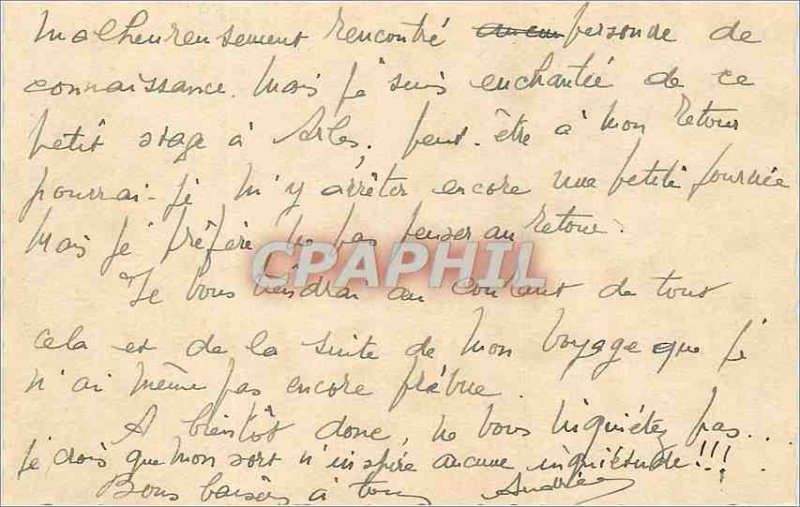 malheureusement rencontré aucun personne de
connaissance. Mais je suis enchantée de ce
petit stage à Arles. peut-être à mon retour
pourrai-je m'y arrêter encore une petite journée
Mais je préfère ne pas penser au retour.
Je vous tiendrai au courant de tout
cela et de la suite de mon voyage que je
n'ai même pas encore prévue.
A bientôt donc, ne vous inquiétez pas...
je crois que mon sort n'inspire aucune inquiétude!!!
Bons baisers à tous
CPAPHIL